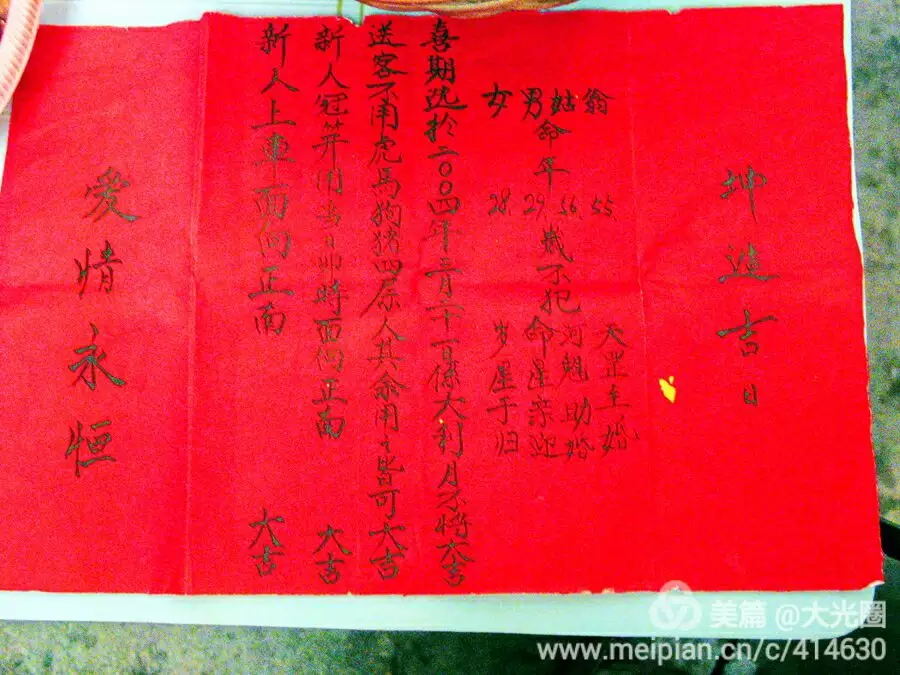 坤造吉日
翁 55 天罡主婚
姑 56 河魁助婚
男命年 29 歲不犯命星亲迎
女 28 岁星于归
喜期选於二〇〇四年三月二十一日係大利月不将大吉
送客不用虎馬狗猪四属人其余用之皆可大吉
新人冠笄用当日卯時面向正南 大吉
新人上車面向正南 大吉
愛情永恒
美篇 @大光圈
www.meipian.cn/c/414630